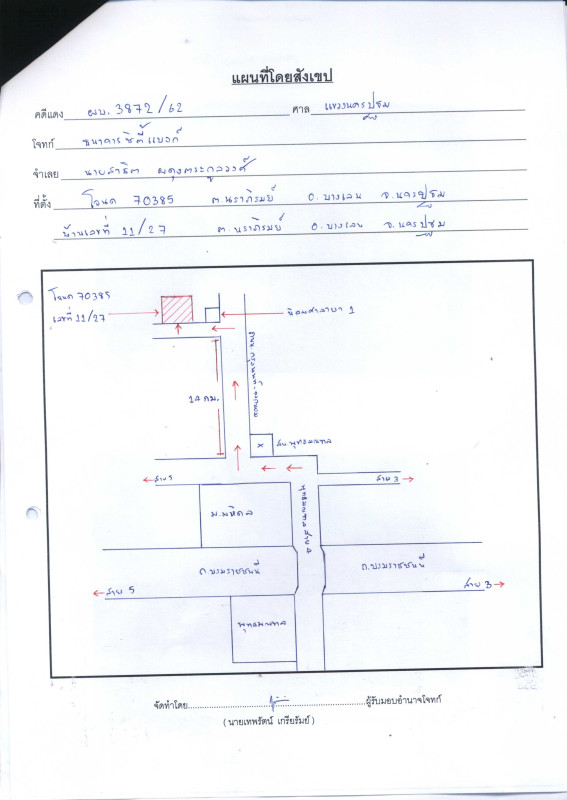 แผนที่โดยสังเขป
คดีแดง ผบ. 3872/62 ศาล แขวงนครปฐม
โจทก์ ธนาคารซิตี้แบงก์
จำเลย นายสาธิต
ที่ตั้ง โฉนด 70385 ต.นราภิรมย์ อ.บางเลน จ.นครปฐม
บ้านเลขที่ 11/27 ต.นราภิรมย์ อ.บางเลน จ.นครปฐม
โฉนด 70385
เลขที่ 11/27
นิลเพชรลายา 1
14 กม.
สน.พุทธมณฑล
X
สาย 5
สาย 3
ม.มหิดล
พุทธมณฑลสาย 4
ถ.บรมราชชนนี
ถ.บรมราชชนนี
สาย 5
สาย 3
พุทธมณฑล
จัดทำโดย ผู้รับมอบอำนาจโจทก์
( นายเทพรัตน์ เกรียรัมย์ )